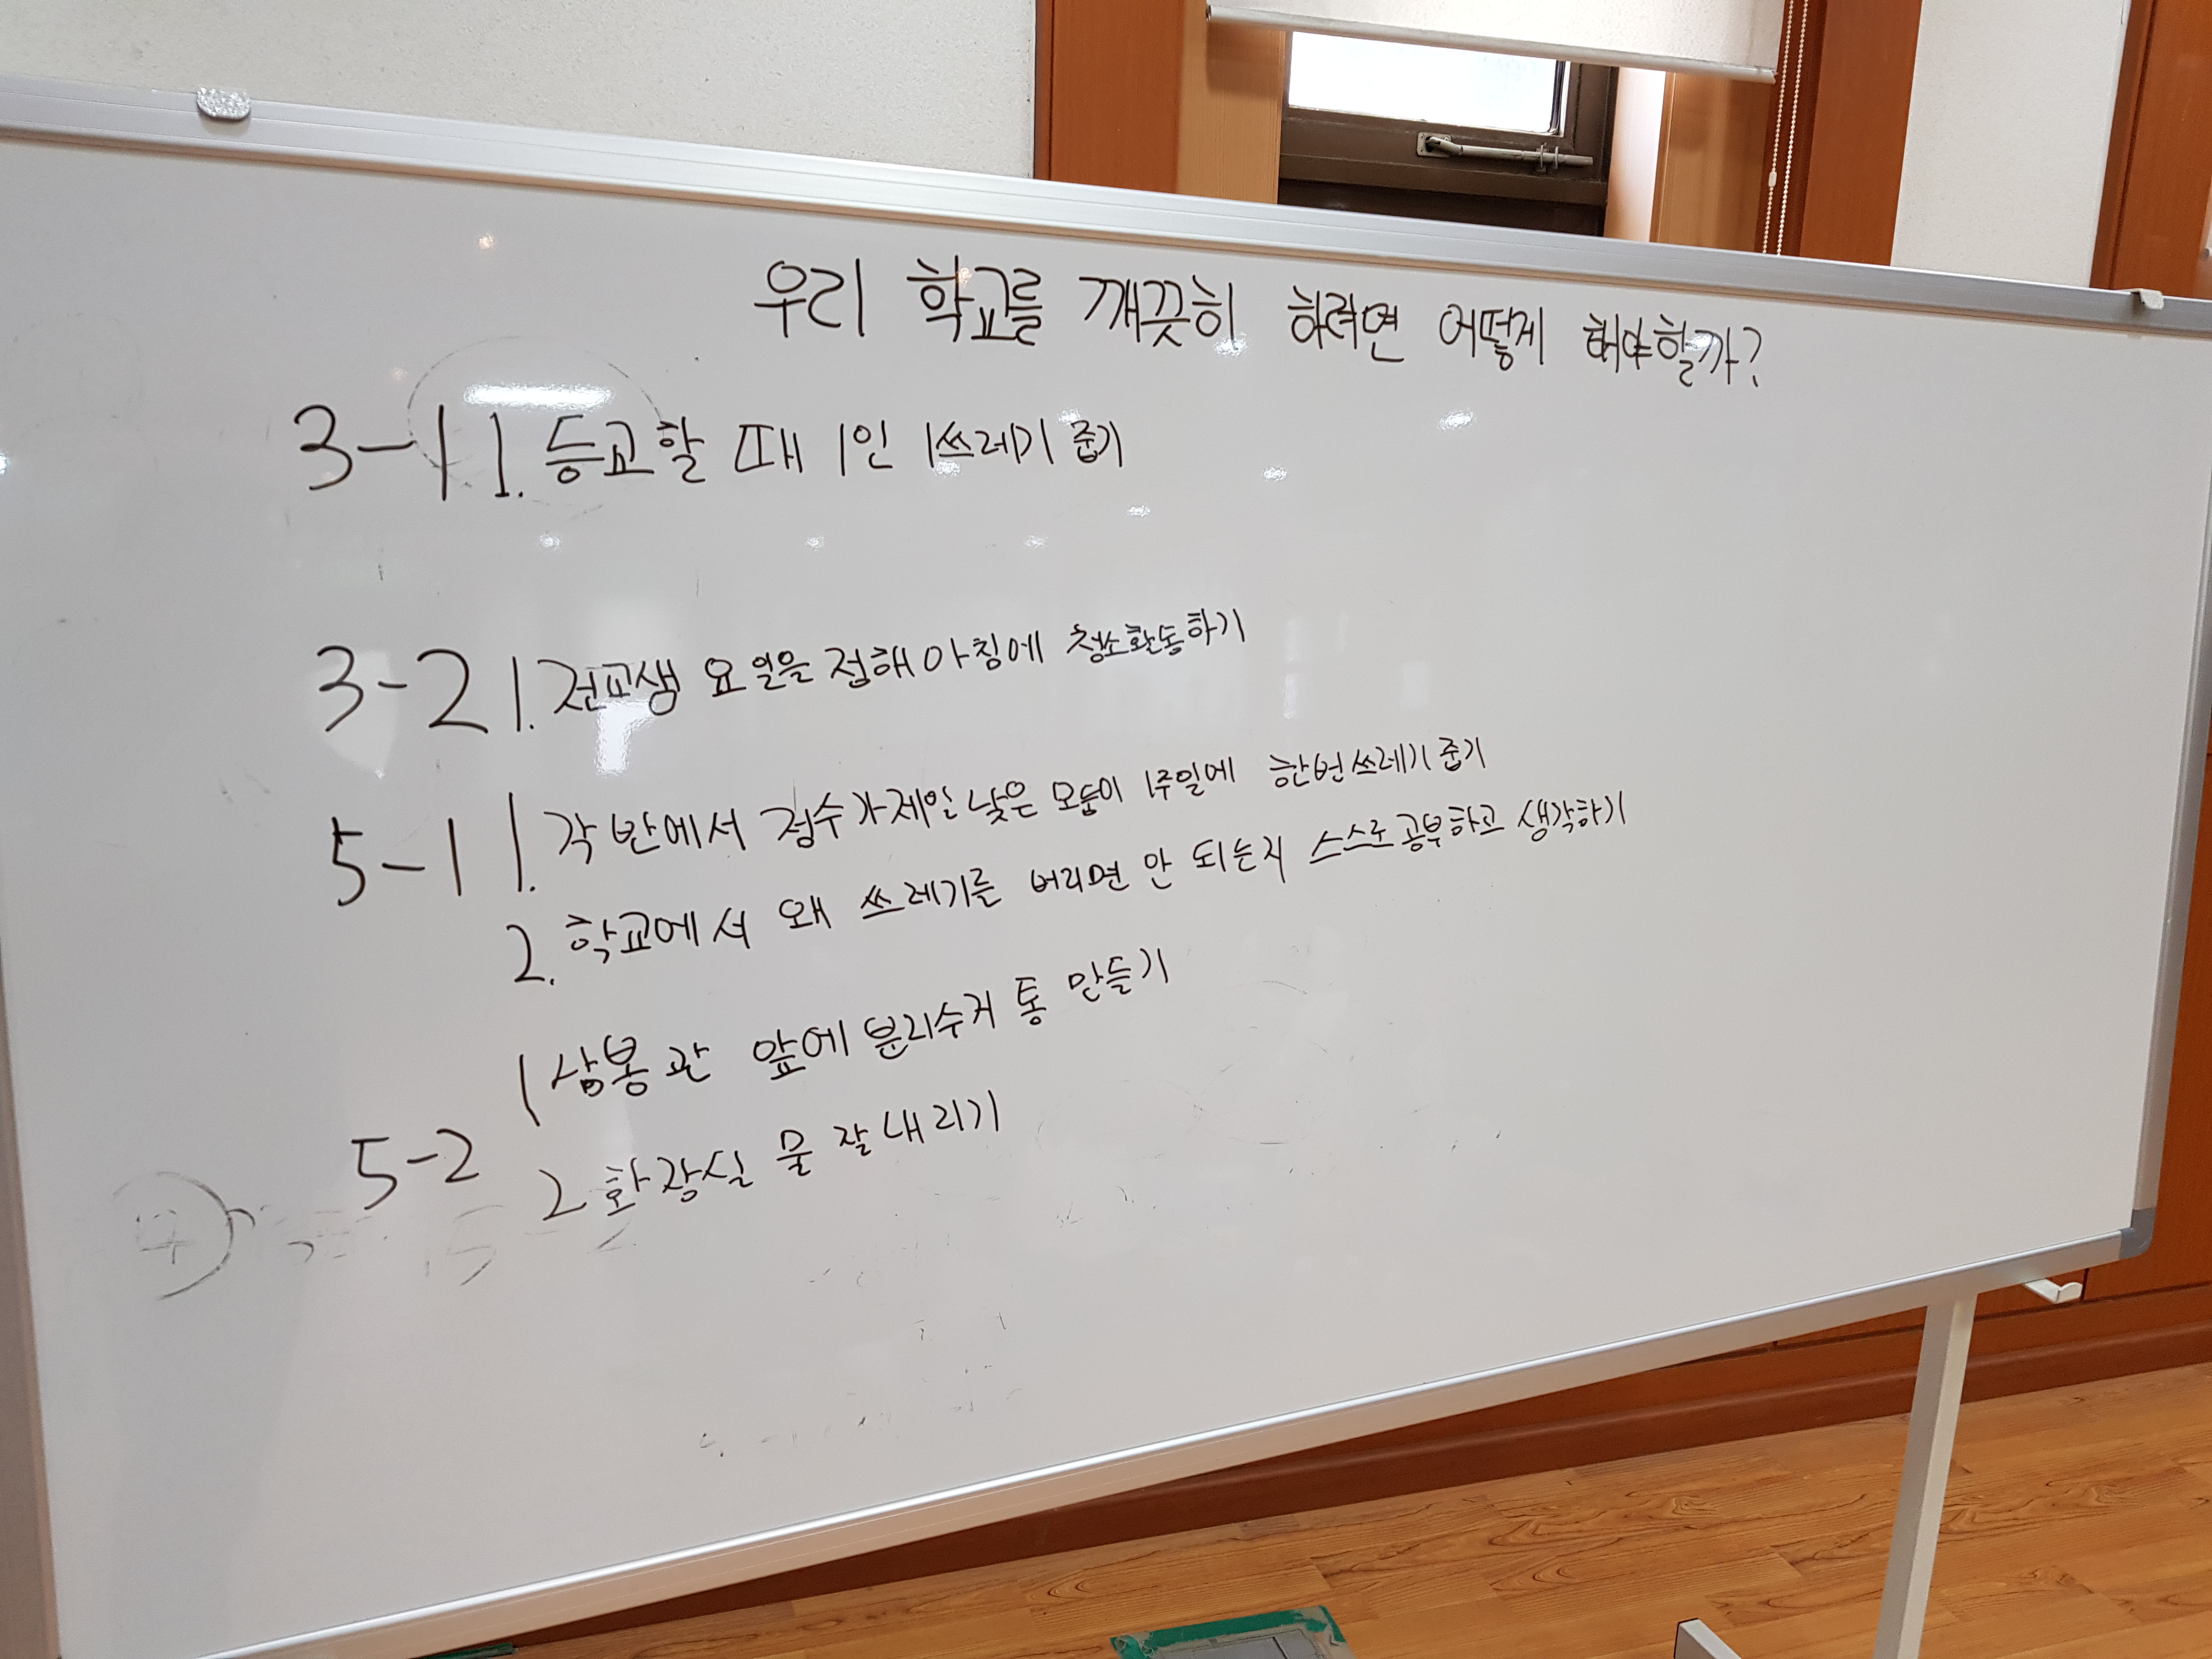 우리 학교를 깨끗히 하려면 어떻게 해야할까?
3-1 1. 등교할 때 1인 1쓰레기 줍기
3-2 1. 전교생 요일을 정해 아침에 청소활동하기
5-1 1. 각 반에서 점수가 제일 낮은 모둠이 1주일에 한번 쓰레기 줍기
2. 학교에서 왜 쓰레기를 버리면 안 되는지 스스로 공부하고 생각하기
1 삼봉관 앞에 분리수거 통 만들기
5-2 2 화장실 물 잘 내리기